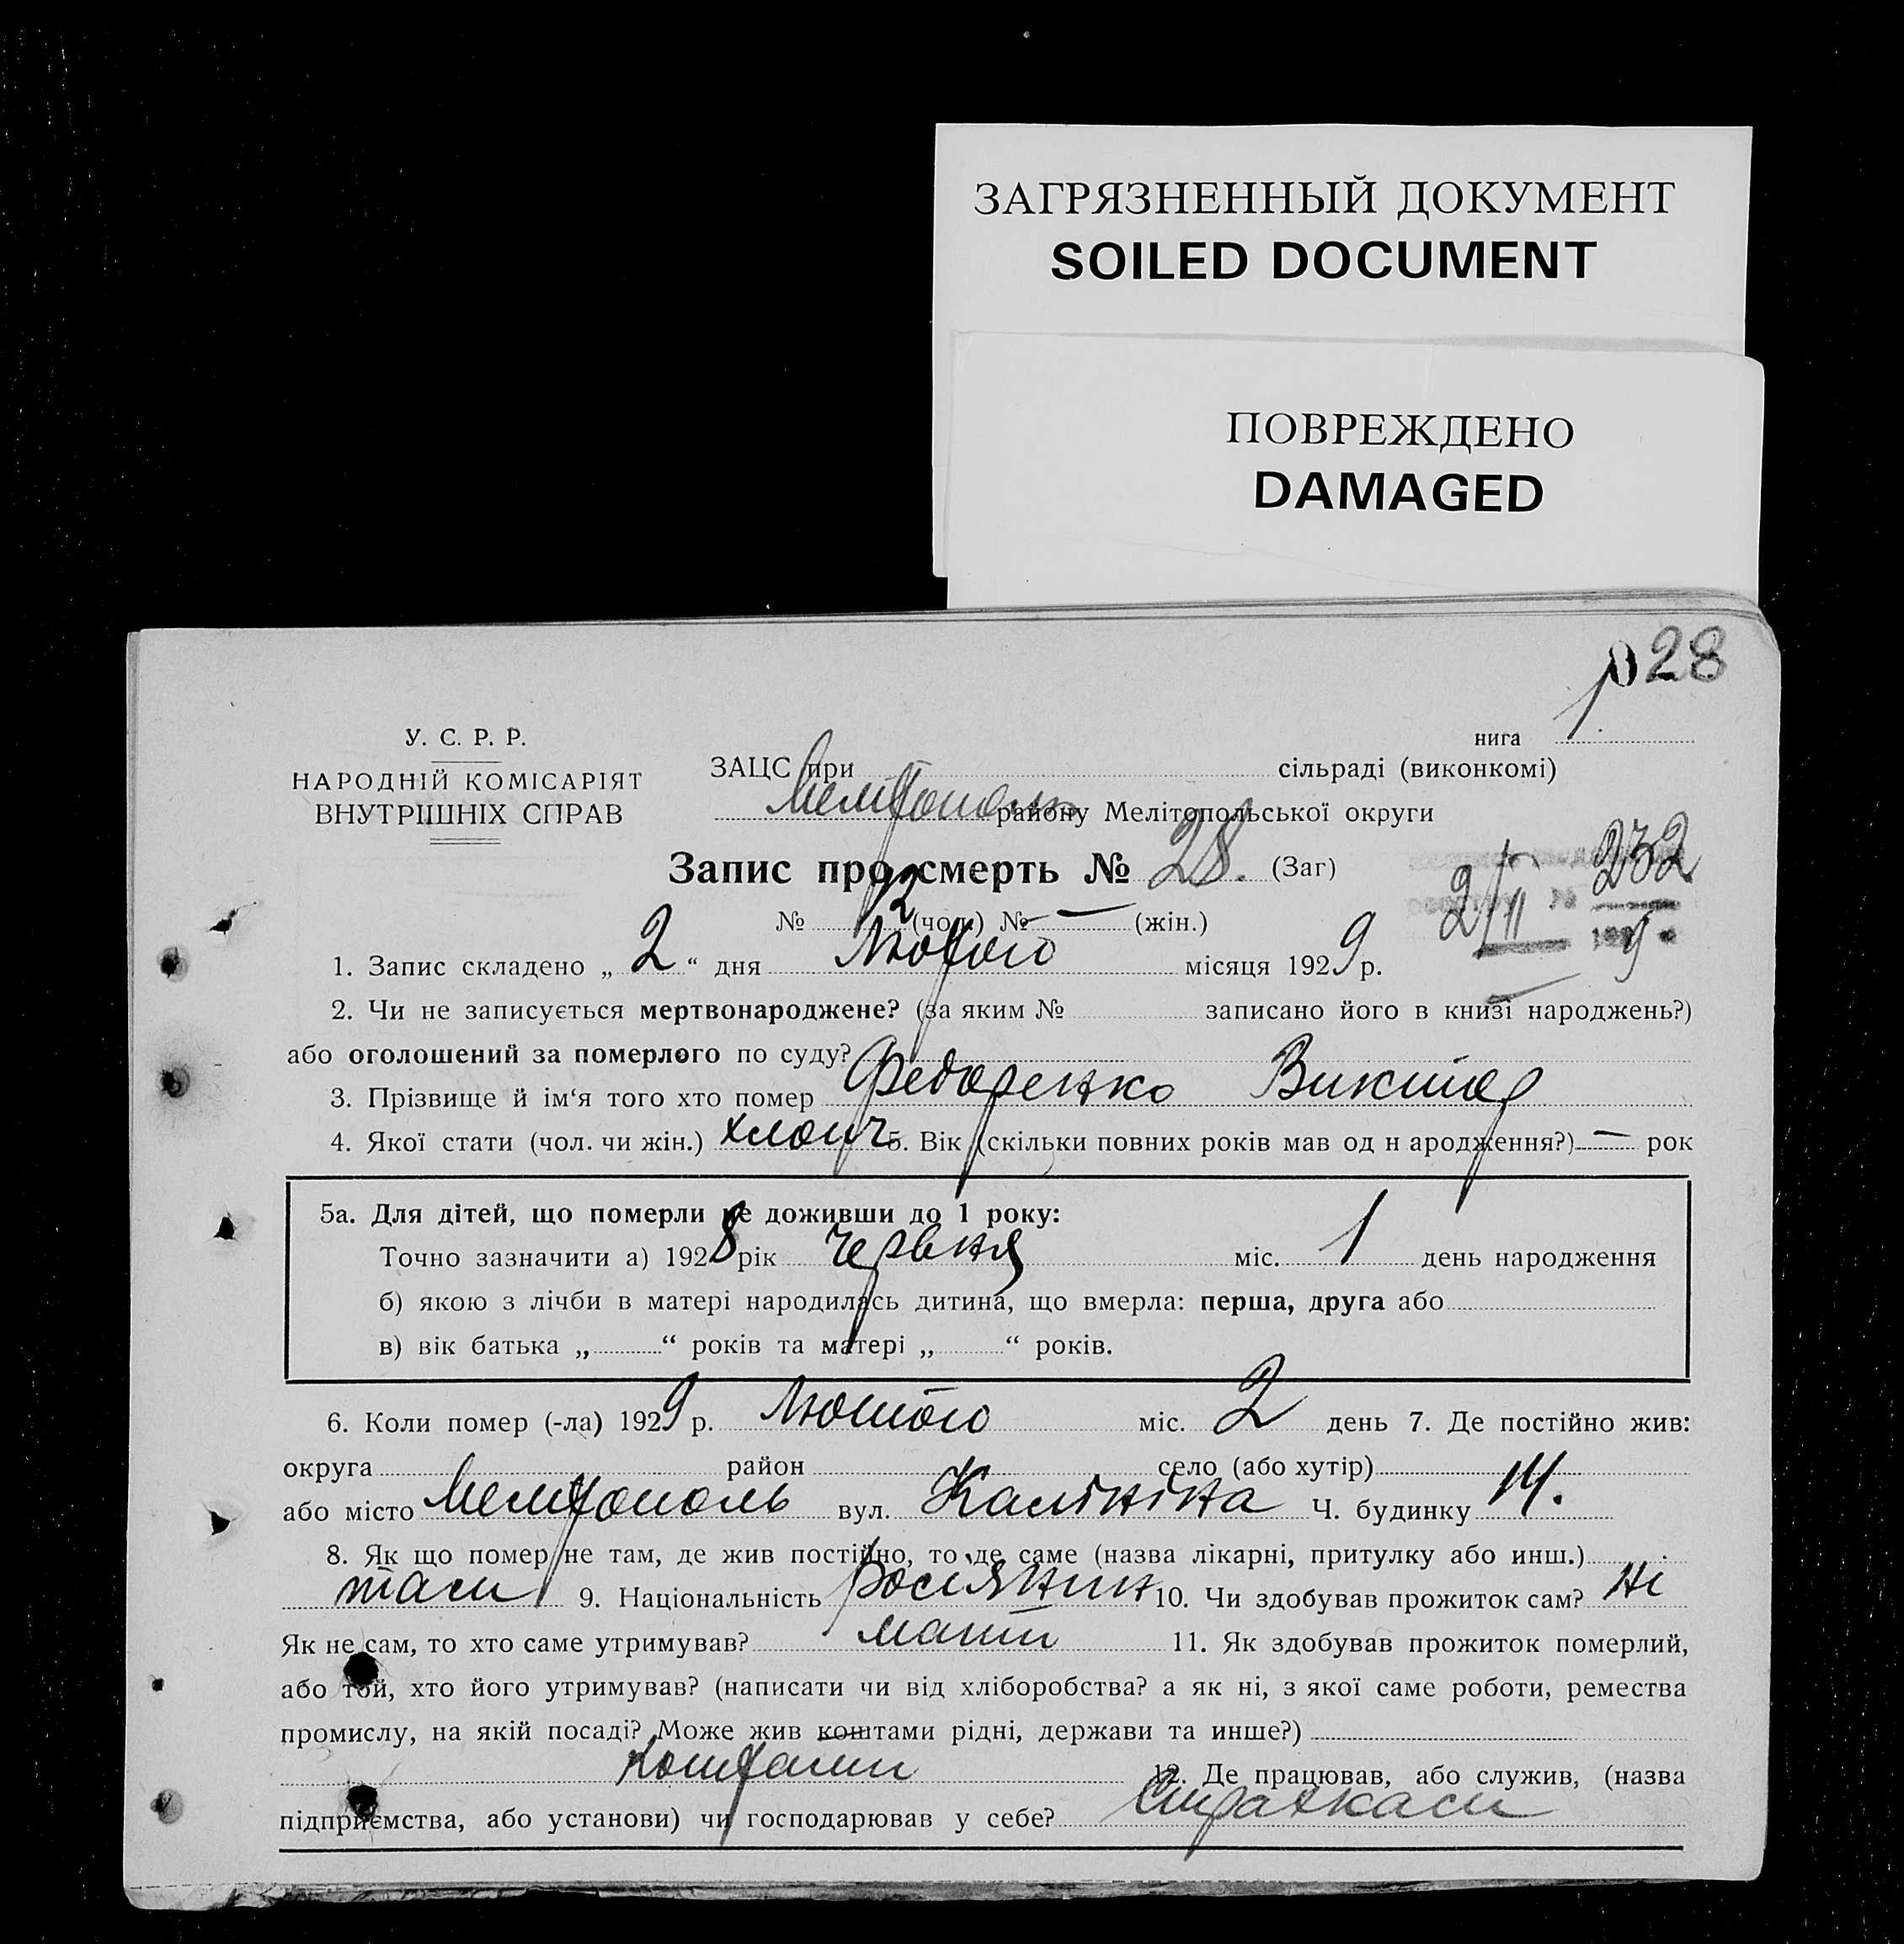 ЗАГРЯЗНЕННЫЙ ДОКУМЕНТ
SOILED DOCUMENT
ПОВРЕЖДЕНО
DAMAGED
028
У. С. Р. Р.
НАРОДНІЙ КОМІСАРІЯТ
ВНУТРІШНІХ СПРАВ
нига 1
ЗАЦС при сільраді (виконкомі)
Мелітополь району Мелітопольської округи
Запис про смерть № 28. (Заг)
232
2/II № 9
№ 12 (чол.) № — (жін.)
1. Запис складено „ 2 “ дня Лютого місяця 1929 р.
2. Чи не записується мертвонароджене? (за яким № записано його в книзі народжень?)
або оголошений за померлого по суду?
3. Прізвище й ім‘я того хто помер Федоренко Виктор
4. Якої стати (чол. чи жін.) хлопч 5. Вік (скільки повних років мав од н ародження?) — рок
5а. Для дітей, що померли не доживши до 1 року:
Точно зазначити а) 1928 рік червня міс. 1 день народження
б) якою з лічби в матері народилась дитина, що вмерла: перша, друга або
в) вік батька „ “ років та матері „ “ років.
6. Коли помер (-ла) 1929 р. Лютого міс. 2 день 7. Де постійно жив:
округа район село (або хутір)
або місто Мелітополь вул. Калініна Ч. будинку 14.
8. Як що помер не там, де жив постійно, то де саме (назва лікарні, притулку або инш.)
там 9. Національність Росіянин 10. Чи здобував прожиток сам? ні
Як не сам, то хто саме утримував? мати 11. Як здобував прожиток померлий,
або той, хто його утримував? (написати чи від хліборобства? а як ні, з якої саме роботи, ремества
промислу, на якій посаді? Може жив коштами рідні, держави та инше?)
коштами 12. Де працював, або служив, (назва
підприємства, або установи) чи господарював у себе? Страхкаси